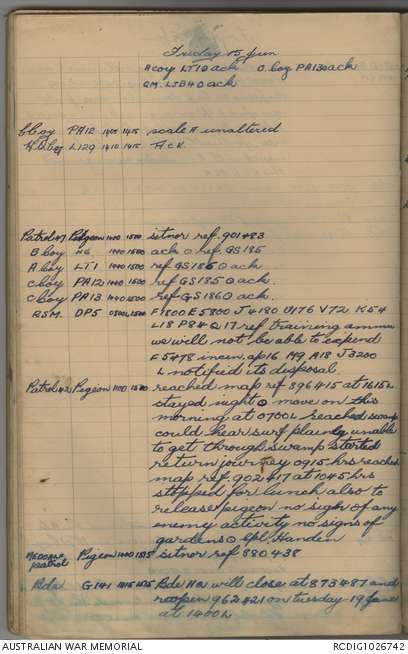 Friday 15 Jun
A coy LT10 ack O. boy PA130 ack
QM. LJB40 ack
C boy PA12 1405 1415 scale A unaltered
H.Q. boy L129 1410 1415 Ack
Patrol 47 Pidgeon 1100 1500 sitnor ref. 901483
B boy H6 1440 1500 ack O ref. GS185
A boy LT1 1440 1500 ref GS185 O ack
C boy PA12 1440 1500 ref. GS185 O ack.
C boy PA13 1440 1500 ref GS186 O ack.
RSM. DP5 0800 1500 F1800 E5800 J4180 U176 V72 K54
L18 P84 Q17 ref training ammn
we will not be able to expend
E5478 incin. gp16 M9 A18 J3200
L notified its disposal.
Patrol 42 Pigeon 1100 1520 reached map ref 896415 at 1615L
stayed night O move on this
morning at 0700L reached swamp
could hear surf plainly unable
to get through swamp started
return journey 0915 hrs reached
map ref. 902417 at 1045 hrs
stopped for lunch also to
release pigeon no sign of any
enemy activity no signs of
gardens O Cpl. Handen
patrol Pigeon 1100 1525 sitnor ref 880438
Bde G141 1415 1525 Bde HQ will close at 873487 and
reopen 962421 on tuesday 19 June
at 1400L
AUSTRALIAN WAR MEMORIAL RCDIG1026742